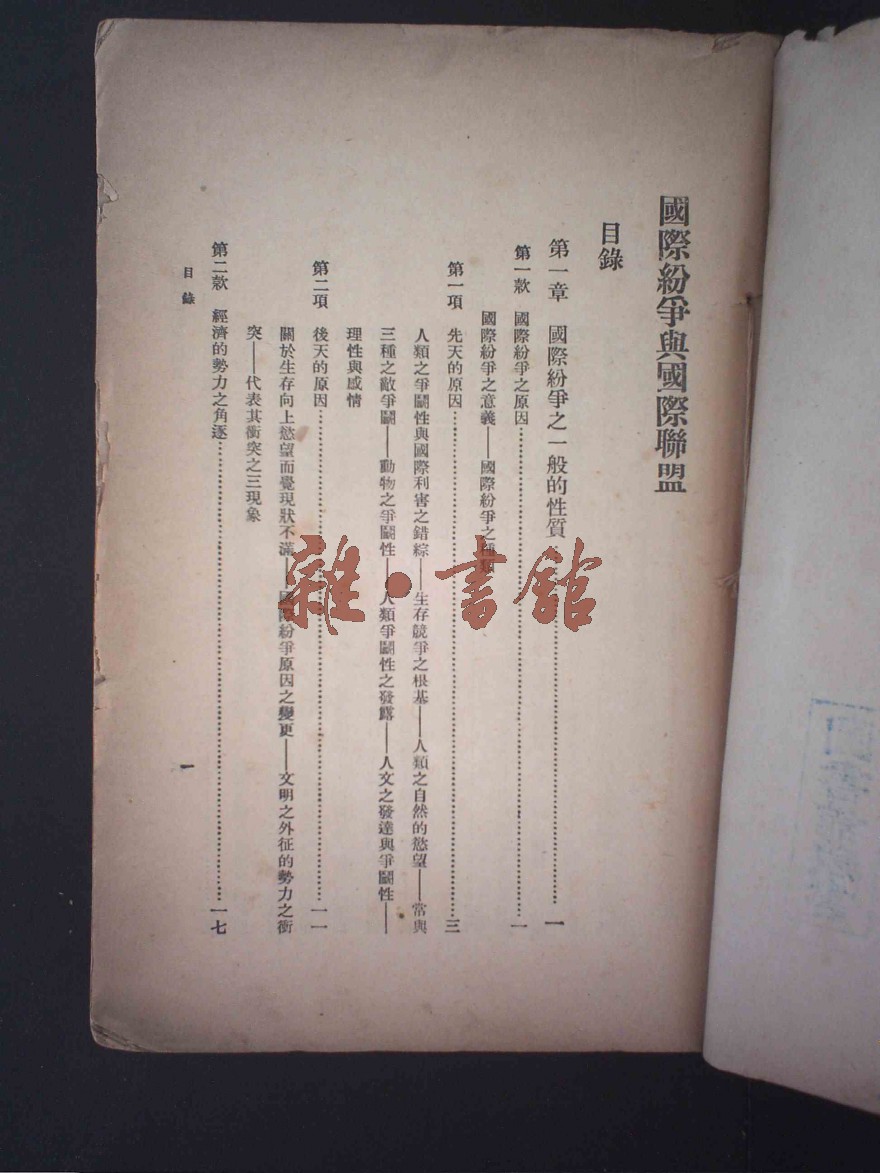 國際紛爭與國際聯盟
目錄
第一章 國際紛爭之一般的性質…………一
第一款 國際紛爭之原因…………一
國際紛爭之意義——國際紛爭之種類
第一項 先天的原因…………三
人類之爭鬭性與國際利害之錯綜——生存競爭之根基——人類之自然的慾望——常與
三種之敵爭鬭——動物之爭鬭性——人類爭鬭性之發露——人文之發達與爭鬭性——
理性與感情
第二項 後天的原因…………一一
關於生存向上慾望而覺現狀不滿——國際紛爭原因之變更——文明之外征的勢力之衝
突——代表其衝突之三現象
第二款 經濟的勢力之角逐…………一七
目錄
一
雜·書館